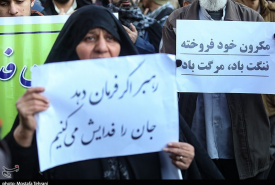 مکرون خود فروخته
ننگت باد، مرگت باد
رهبر اگر فرمان دهد
جان را فدایش می‌کنیم
photo: Mostafa Tehrani